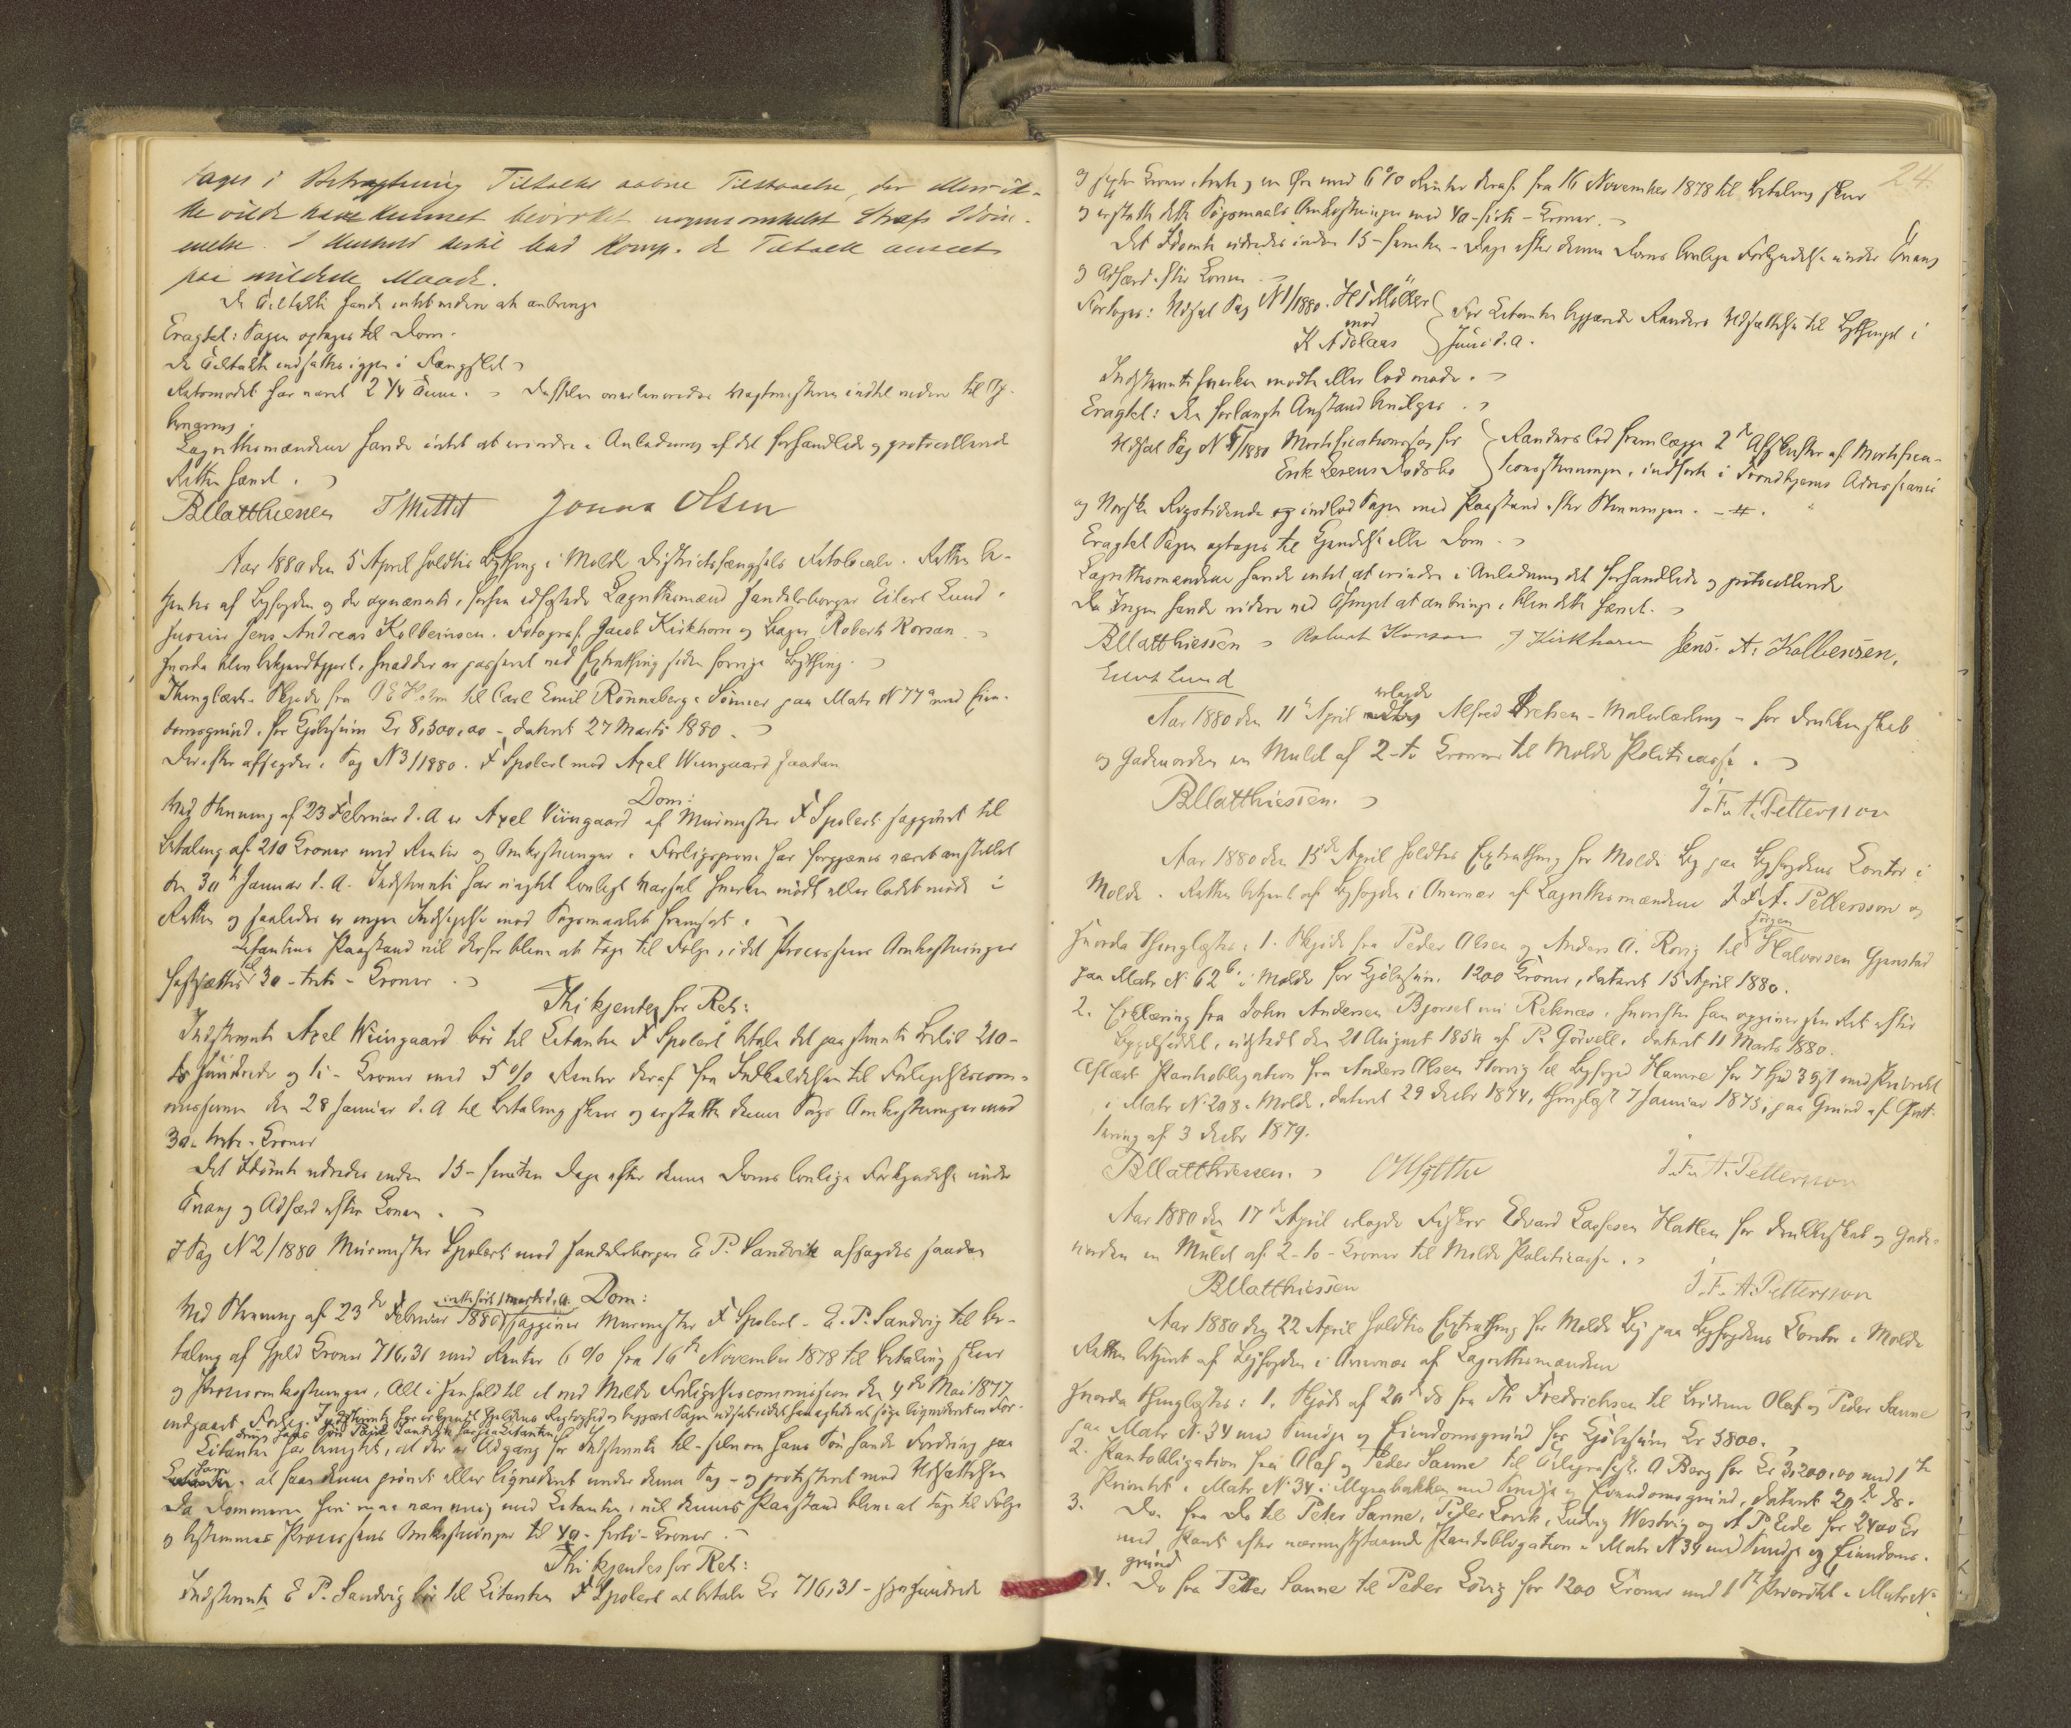 tages i Betragtning Tiltaltes aabne Tilstaaelse, der ellers ik-
ke vilde have kunnet bevirket nogensomhelst Straf
I Henhold dertil bad Komp. de Tiltalte anseet
paa mildeste Maade.
De Tiltalte havde intet videre at anbringe
Eragtet: Sagen optages til Dom.
De Tiltalte indsattes igjen i Fængslet
Retsmødet har varet 2 1/4 Time.
Lagrettesmændene havde intet at erindre i Anledning af det forhandlede og protocollerede
Retten hævet.
BMatthiessen T Mittet Jonas Olsen
Aar 1880 den 5 April holdtes Bything i Molde Districtsfængsels Retslocale. Retten be-
tjentes af Byfogden og de opnævnte, forhen edfæstede Lagrettesmænd Handelsborger Eilert Lund,
Jens Andreas Kolbeinsen, Fotograf Jacob Kirkhorn og Bager Robert Korsan
Hvorda blev bekjendtgjort, hvad der er passeret ved Extrathing siden forrige Bything.
Thinglæst: Skjøde fra O E Holm til Carl Emil Rønneberg & Sønner paa Matr N 77a med Eien-
domsgrund, for Kjøbesum Kr 8,500,00 - dateret 27 Marts 1880.
Derefter afsagdes i Sag N 3/1880. F Spolert mod Axel Wiingaard saadan
Dom:
Ved Stevning af 23 Februar d. A er Axel Wiingaard af Murmester F Spolert sagsøgt til
Betaling af 210 Kroner med Renter og Omkostninger. Forligsprøve har forgjæves været anstillet
den 30 Januar d. A. Indstevnte har uagtet lovligt Varsel hverken mødt eller ladet møde i
Retten og saaledes er ingen Indsigelse mod Søgsmaalet fremsat.
Citantens Paastand vil derfor blive at tage til Følge, idet Processens Omkostninger
fastsættes til 30 - treti - Kroner.
Thi kjendes for Ret:
Indstevnte Axel Wiingaard bør til Citanten F Spolert betale det paastevnte Beløb 210 -
to Hundrede og ti - Kroner med 5 % Renter deraf fra Indkaldelsen til Forligelsescom-
missionen den 28 Januar d. A til Betaling skeer og erstatte denne Sags Omkostninger med
30 - treti - Kroner
Det Idømte udredes inden 15 - femten Dage efter denne Doms lovlige Forkyndelse under
Tvang og Adfærd efter Loven.
I Sag N 2/1880 Murmester Spolert mod Handelsborger E P. Sandvik afsagdes saadan
Dom:
Ved Stevning af 23de Februar 1880, indkaldt 1 Marts d. A. sagsøger Murmester F Spolert - E. P. Sandvig til Be-
taling af Gjeld Kroner 716,31 med Renter 6 % fra 16de November 1878 til Betaling skeer
og Procesomkostninger, Alt i Henhold til et ved Molde Forligelsescommission den 4de Mai 1877
indgaaet Forlig.
Citanten har benegtet, at der er Adgang for Indstevnte til - selv om hans Søn havde Fordring paa
Da Dommeren heri maa være enig med Citanten, vil dennes Paastand blive at tage til Følge
og bestemmes Processens Omkostninger til 40 - forti - Kroner.
Thi kjendes for Ret:
Indstevnte E P. Sandvig bør til Citanten F Spolert at betale Kr 716,31 - syv hundrede
24.
og sexten Kroner, treti og en Øre med 6 % Renter deraf fra 16 November 1878 til Betaling skeer
og erstatte dette Søgsmaals Omkostninger med 40 - forti - Kroner.
Det Idømte udredes inden 15 - femten - Dage efter denne Doms lovlige Forkyndelse under Tvang
og Adfærd efter Loven.
Foretoges: Udsat Sag N 1/1880. H S Møller
mod
K A Tolaas
For Citanten begjærede Randers Udsættelse til Bythinget i
Juni d. A.
Indstevnte hverken mødte eller lod møde.
Eragtet: Den forlangte Anstand bevilges.
Udsat Sag N 5/1880 Mortificationssag for
Erik
Randers lod fremlægge 2de Afskrifter af Mortifica-
tionsstevningen, indført i Trondhjems Adresseavis
og Norske Rigstidende og indlod Sagen med Paastand efter Stevningen.
Eragtet Sagen optages til Kjendelse eller Dom.
Lagrettesmændene havde intet at erindre i Anledning det forhandlede og protocollerede
Da Ingen havde videre ved Thinget at anbringe, blev dette hævet.
BMatthiessen Robert Korsan J Kirkhorn Jens. A. Kolbensen.
Eilert Lund
Aar 1880 den 11te April erlagde Alfred - Malerlærling - for Drukkenskab
og Gadeuorden en Mulct af 2 - to Kroner til Molde Politicasse.
BMatthiessen. J. F. A. Pettersson
Aar 1880 den 15de April holdtes Extrathing for Molde By paa Byfogdens Contor i
Molde. Retten betjent af Byfogden i Overvær af Lagrettesmændene J. F. A. Pettersson og
Hvorda thinglæstes: 1. Skjøde fra Peder Olsen og Anders A. Rovig til Jørgen Halvorsen Gjenstad
paa Matr N. 62 b. i Molde for Kjøbesum. 1200 Kroner, dateret 15 April 1880.
2. Erklæring fra John Andersen Bjorset ved Reknæs, hvorefter han opgiver sin Ret efter
Bygselseddel, udstedt den 21 August 1850 af P. Gørvell. dateret 11 Marts 1880.
Aflæst Pantobligation fra Anders Olsen Storvig til Byfoged Hamre for 7 Spd 3 Ort med Prioritet
i Matr N. 208 i Molde, dateret 29 Decbr 1874, thinglæst 7 Januar 1875, paa Grund af Qvit-
tering af 3 Decbr 1879.
BMatthiessen. J. F. A. Pettersson
Aar 1880 den 17de April erlagde Fisker Edvard Lassesen Hatlen for Drukkenskab og Gade-
uorden en Mulct af 2 - to - Kroner til Molde Politicasse.
BMatthiessen J. F. A. Pettersson
Aar 1880 den 22 April holdtes Extrathing for Molde By paa Byfogdens Contor i Molde
Retten betjent af Byfogden i Overvær af Lagrettesmændene
Hvorda thinglæstes: 1. Skjøde af 20de ds fra Th Fredrichsen til Brødrene Olaf og Peder Sanne
paa Matr N. 34 med Huse og Eiendomsgrund for Kjøbesum Kr 5800.
2. Pantobligation fra Olaf og Peder Sanne til A Berg for Kr 3,200,00 med 1ste
Prioritet i Matr N. 34 i Myrabakken med og Eiendomsgrund, dateret 20de ds.
3. Do fra Do til Peter Sanne, Peder Lovik, Ludvig Westvig og A P Eide for 2400 Kr
med Pant efter nærmestforstaaende Pantobligation i Matr N 34 med og Eiendoms-
grund
4. Do fra Petter Sanne til Peder Lovig for 1200 Kroner med 1ste Prioritet i Matr N.